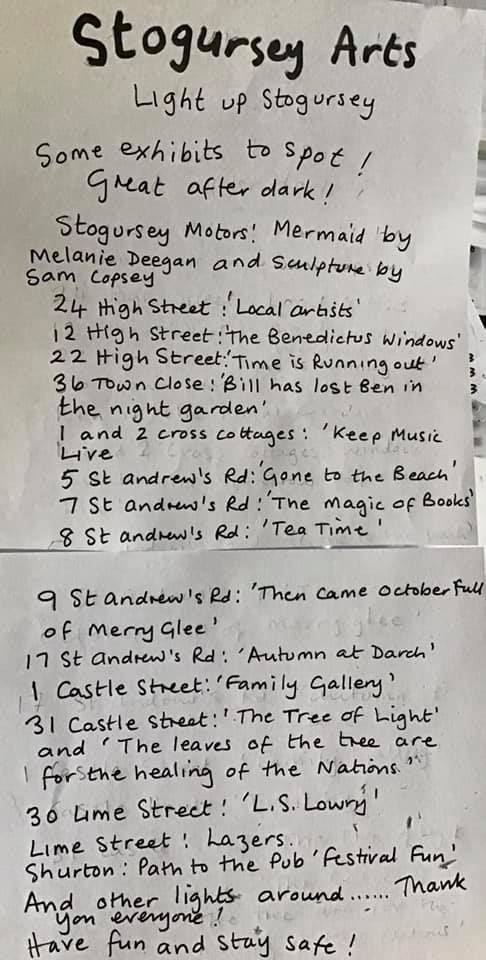 Stogursey Arts
Light up Stogursey
Some exhibits to spot!
Great after dark!
Stogursey Motors: Mermaid by
Melanie Deegan and sculpture by
Sam Copsey
24 High Street: 'Local artists'
12 High Street: 'The Benedictus Windows'
22 High Street: 'Time is Running out'
36 Town Close: 'Bill has lost Ben in
the night garden'
1 and 2 cross cottages: 'Keep Music
Live
5 St andrew's Rd: 'Gone to the Beach'
7 St andrew's Rd: 'The Magic of Books'
8 St andrew's Rd: 'Tea Time'
9 St andrew's Rd: 'Then came October Full
of Merry Glee'
17 St andrew's Rd: 'Autumn at Darch'
1 Castle Street: 'Family Gallery'
31 Castle Street: 'The Tree of Light'
and 'The leaves of the tree are
for the healing of the Nations.'
30 Lime Street: 'L.S. Lowry'
Lime Street: Lazers.
Shurton: Path to the Pub 'Festival Fun'
And other lights around...... Thank
you everyone!
Have fun and stay safe!